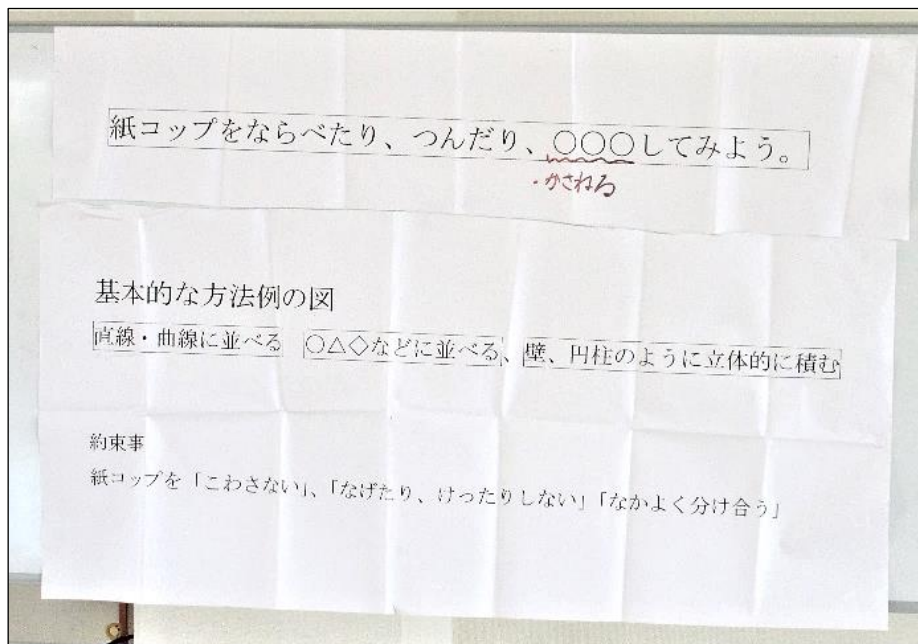 紙コップをならべたり、つんだり、○○○してみよう。
・かさねる
基本的な方法例の図
直線・曲線に並べる　○△◇などに並べる、壁、円柱のように立体的に積む
約束事
紙コップを「こわさない」、「なげたり、けったりしない」「なかよく分け合う」